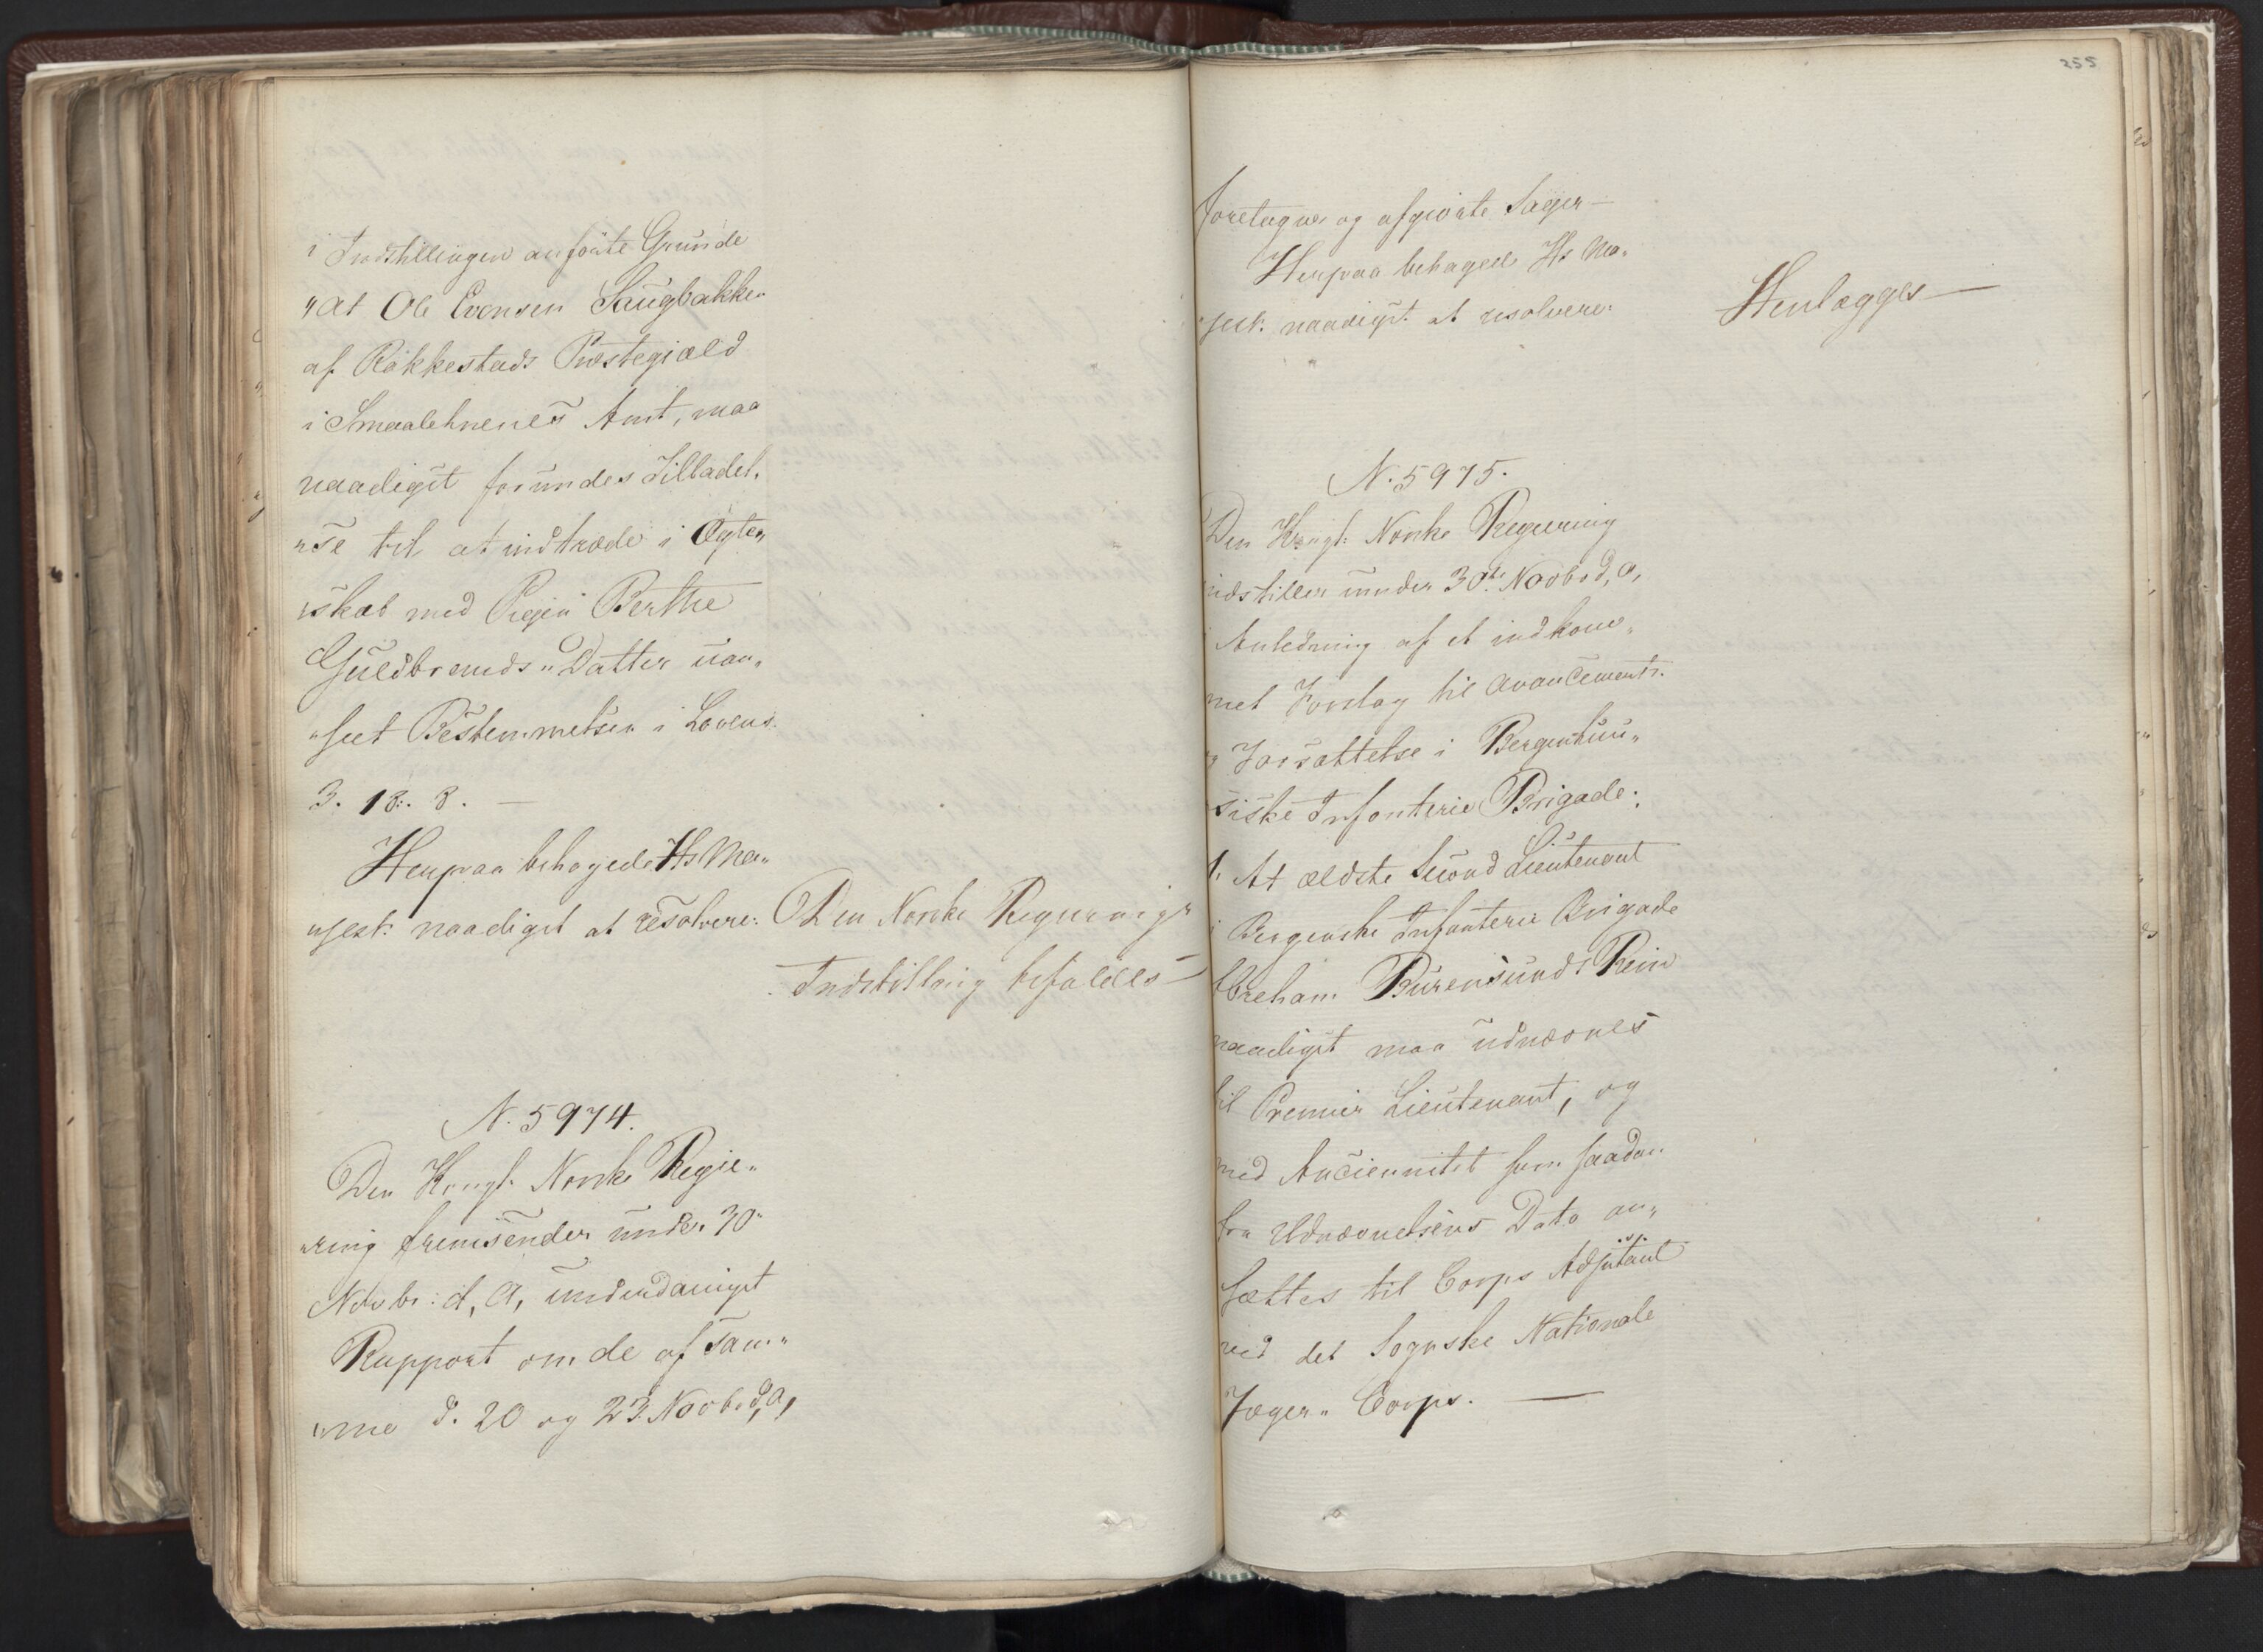 i Indstillingen anførte Grunde
"at Ole Evensen Saugbakken
af Rakkestads Præstegiæld
i Smaalehnenes Amt, maa
naadigst forundes Tilladel„
„se til at indtræde i Ægte„
„skab med Pigen Berthe
Guldbrands„Datter uan„
„seet Bestemmelsen i Lovens
3. 18. 8. —
Herpaa behagede Hs Ma„
„jest: naadigst at resolvere:
Den Norske Regierings
Indstilling bifaldes —
N. 5974.
Den Kongl. Norske Regie„
„ring fremsender under 30
Novbr: d, A, underdanigst
Rapport om de af sam„
„me d. 20 og 23 Novbr. d, A,
255
foretagne og afgiorte Sager —
Herpaa behagede Hs Ma„
„jest: naadigst at resolvere:
Henlægges —
N. 5975.
Den Kongl: Norske Regiering
indstiller under 30te Novbr d, A,
i Anledning af et indkom„
met Forslag til Avancements
og Forsættelse i Bergenhuu„
siske Infanterie Brigade:
1. At ældste Second Lieutenant
i Bergenske Infanterie Brigade
Abraham Burensunds Rein
naadigst maa udnævnes
til Premier Lieutenant, og
med Anciennitet som saadan
fra Udnævnelsens Dato an„
sættes til Corps Adjutant
ved det Sognske Nationale
Jæger„Corps. —